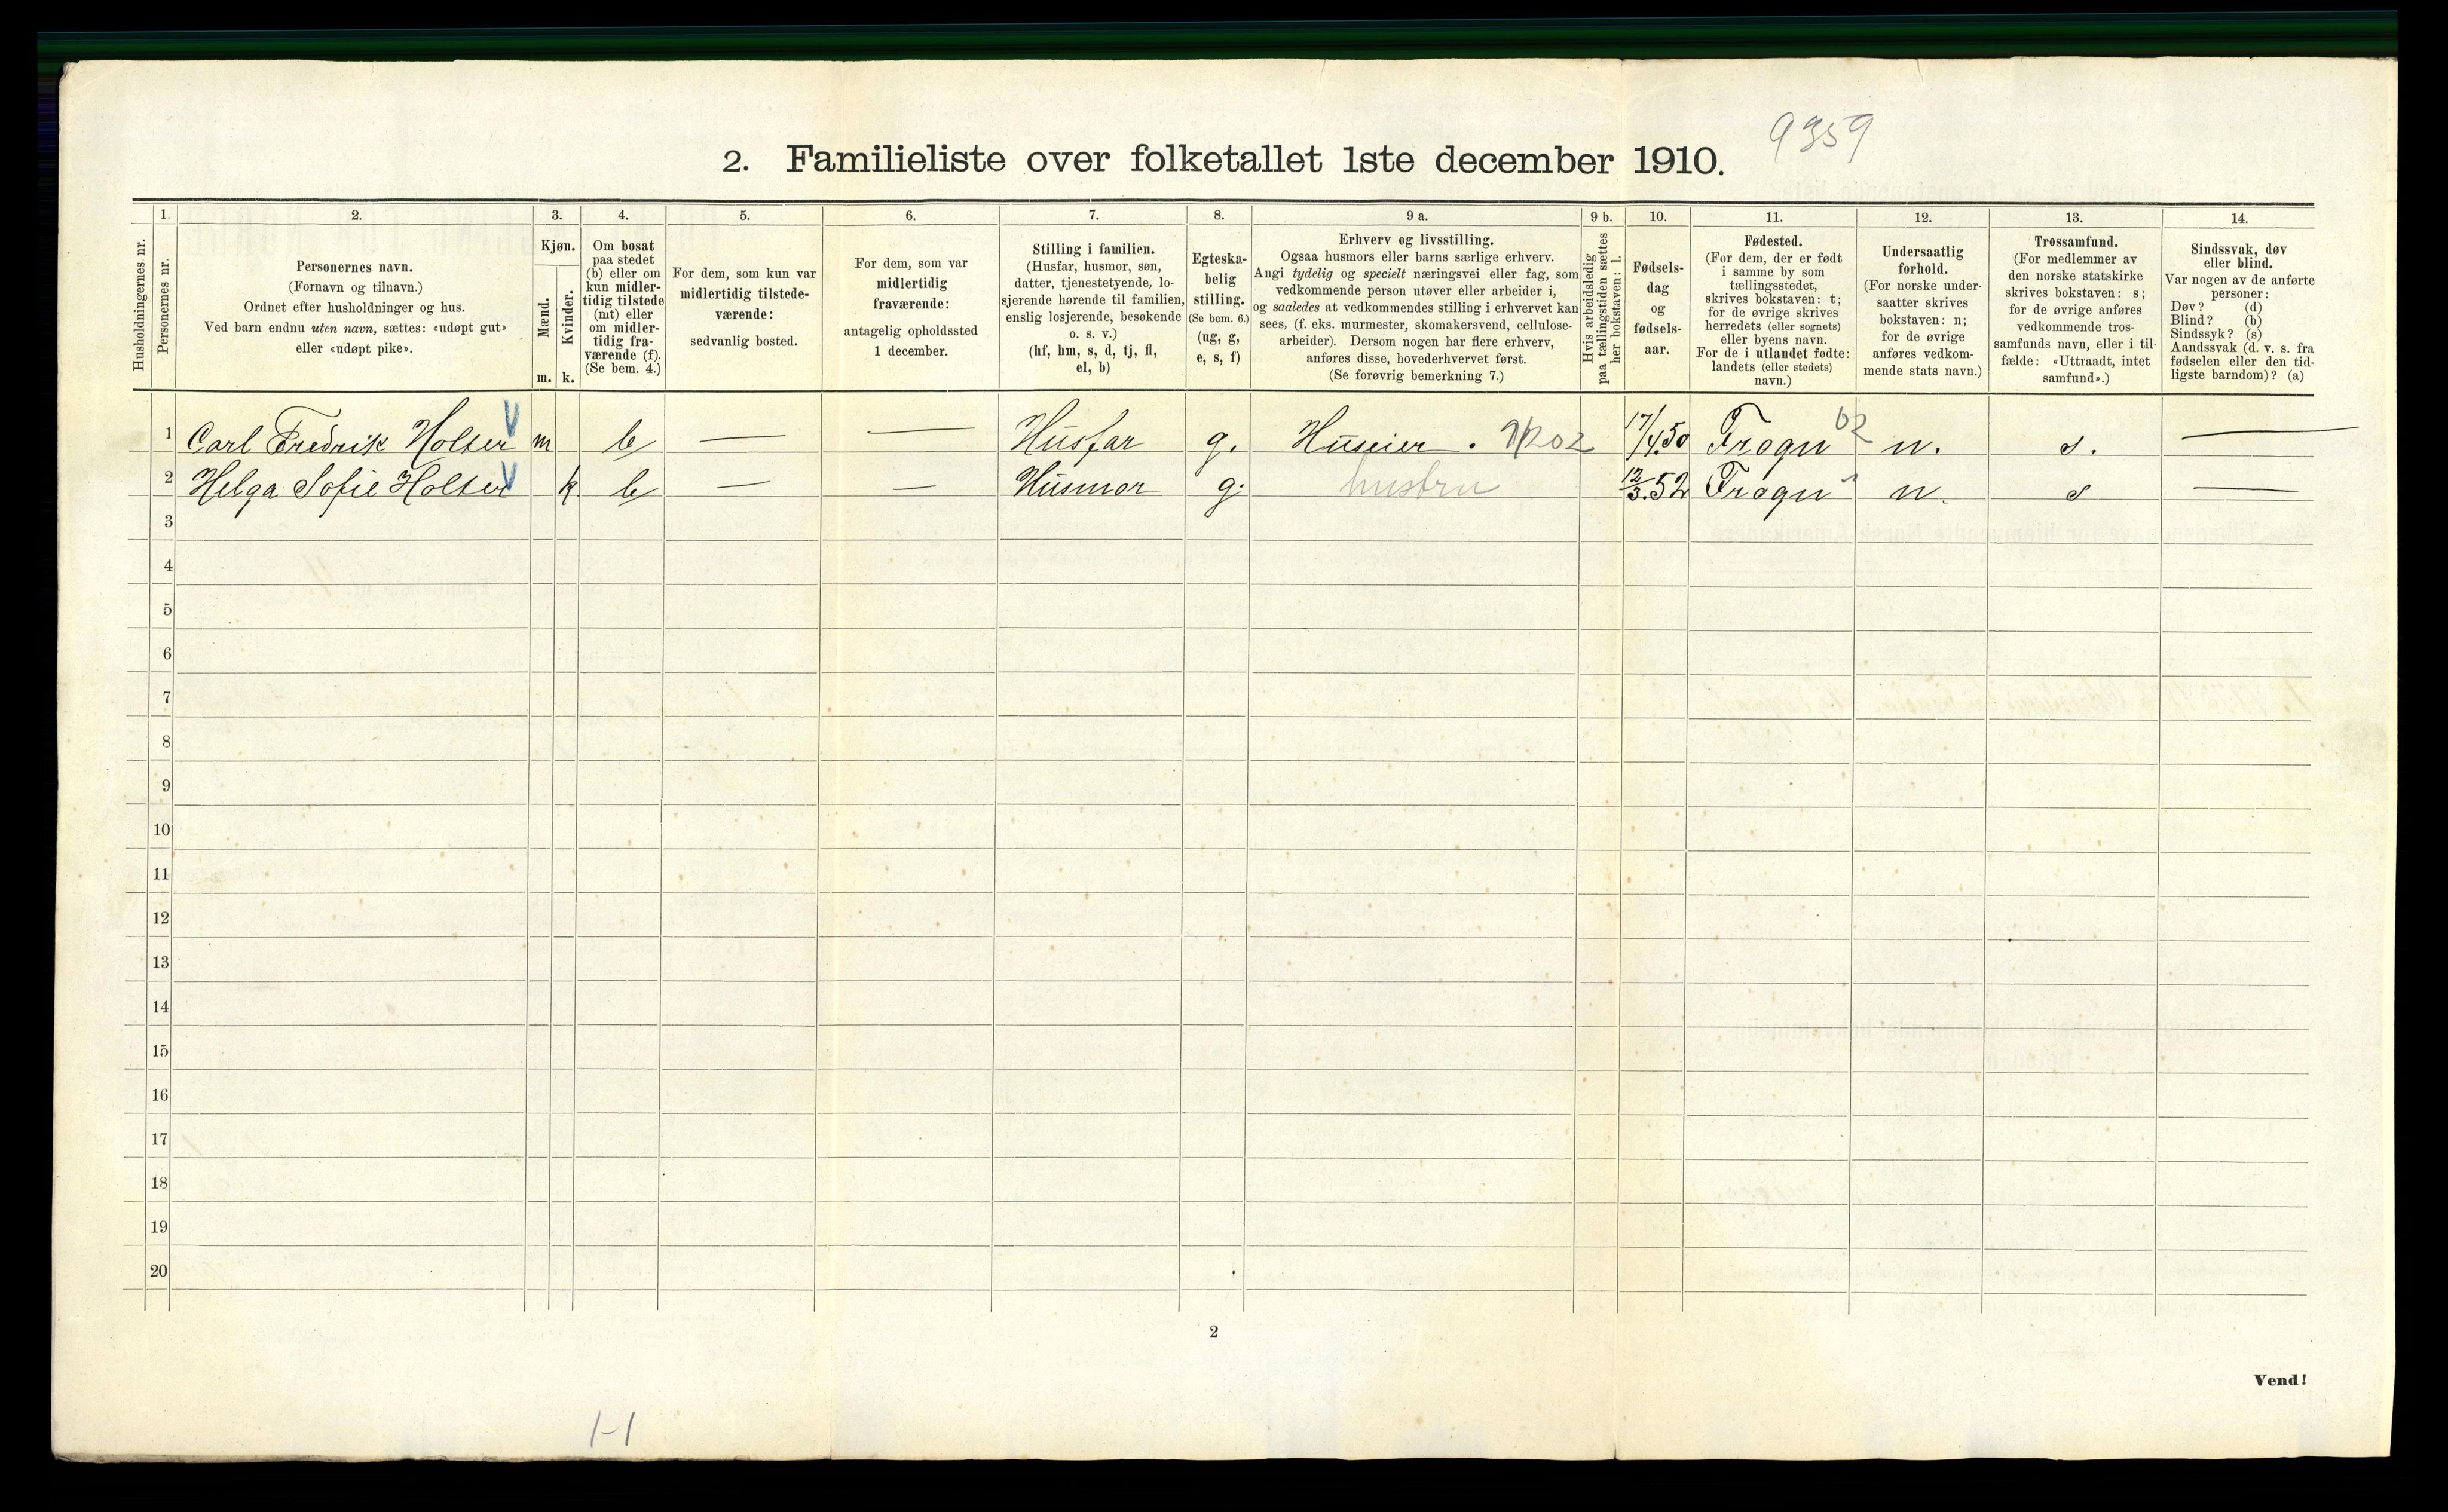 9359
2. Familieliste over folketallet 1ste december 1910.
Husholdningernes nr.
1.
Personernes nr.
2.
Personernes navn.
(Fornavn og tilnavn.)
Ordnet efter husholdninger og hus.
Ved barn endnu uten navn, sættes: «udøpt gut»
eller «udøpt pike».
3.
Kjøn.
Mænd.
m.
Kvinder.
k.
4.
Om bosat
paa stedet
(b) eller om
kun midler-
tidig tilstede
(mt) eller
om midler-
tidig fra-
værende (f).
(Se bem. 4.)
5.
For dem, som kun var
midlertidig tilstede-
værende:
sedvanlig bosted.
6.
For dem, som var
midlertidig
fraværende:
antagelig opholdssted
1 december.
7.
Stilling i familien.
(Husfar, husmor, søn,
datter, tjenestetyende, lo-
sjerende hørende til familien,
enslig losjerende, besøkende
o. s. v.)
(hf, hm, s, d, tj, fl,
el, b)
8.
Egteska-
belig
stilling.
(Se bem. 6.)
(ug, g,
e, s, f)
9 a.
Erhverv og livsstilling.
Ogsaa husmors eller barns særlige erhverv.
Angi tydelig og specielt næringsvei eller fag, som
vedkommende person utøver eller arbeider i,
og saaledes at vedkommendes stilling i erhvervet kan
sees, (f. eks. murmester, skomakersvend, cellulose-
arbeider). Dersom nogen har flere erhverv,
anføres disse, hovederhvervet først.
(Se forøvrig bemerkning 7.)
9 b.
Hvis arbeidsledig
paa tællingstiden sættes
her bokstaven: l.
10.
Fødsels-
dag
og
fødsels-
aar.
11.
Fødested.
(For dem, der er født
i samme by som
tællingsstedet,
skrives bokstaven: t;
for de øvrige skrives
herredets (eller sognets)
eller byens navn.
For de i utlandet fødte:
landets (eller stedets)
navn.)
12.
Undersaatlig
forhold.
(For norske under-
saatter skrives
bokstaven: n;
for de øvrige
anføres vedkom-
mende stats navn.)
13.
Trossamfund.
(For medlemmer av
den norske statskirke
skrives bokstaven: s;
for de øvrige anføres
vedkommende tros-
samfunds navn, eller i til-
fælde: «Uttraadt, intet
samfund».)
14.
Sindssvak, døv
eller blind.
Var nogen av de anførte
personer:
Døv? (d)
Blind? (b)
Sindssyk? (s)
Aandssvak (d. v. s. fra
fødselen eller den tid-
ligste barndom)? (a)
1 Carl Fredrik Holter m b — — Husfar g. Huseier. 17/4.50 Frogn 02 n. s. —
2 Helga Sofie Holter k b — — Husmor g. hustru 12/3.52 Frogn " n. s —
3
4
5
6
7
8
9
10
11
12
13
14
15
16
17
18
19
20
2
Vend!
1-1